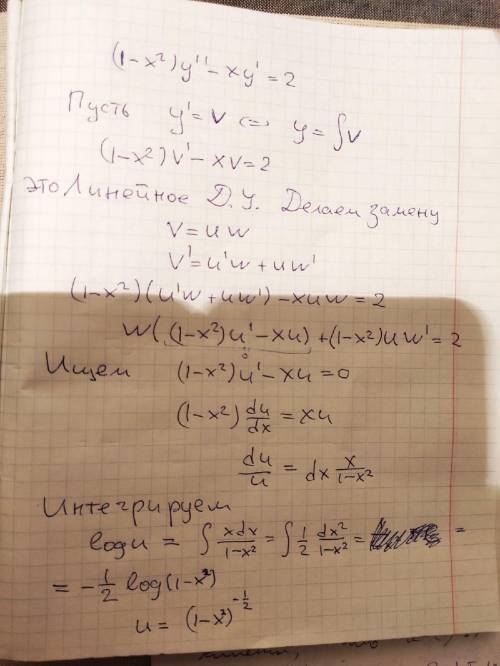 (1-x²)y'' - xy' = 2
Пусть y' = v <=> y = ∫v
(1-x²)v' - xv = 2
это Линейное Д.У. Делаем замену
v = uw
v' = u'w + uw'
(1-x²)(u'w + uw') - xuw = 2
w((1-x²)u' - xu) + (1-x²)uw' = 2
0
Ищем (1-x²)u' - xu = 0
(1-x²) du/dx = xu
du/u = dx x/(1-x²)
Интегрируем
log u = ∫ xdx/(1-x²) = ∫ 1/2 dx²/(1-x²) = =
= -1/2 log(1-x²)
u = (1-x²)^(-1/2)